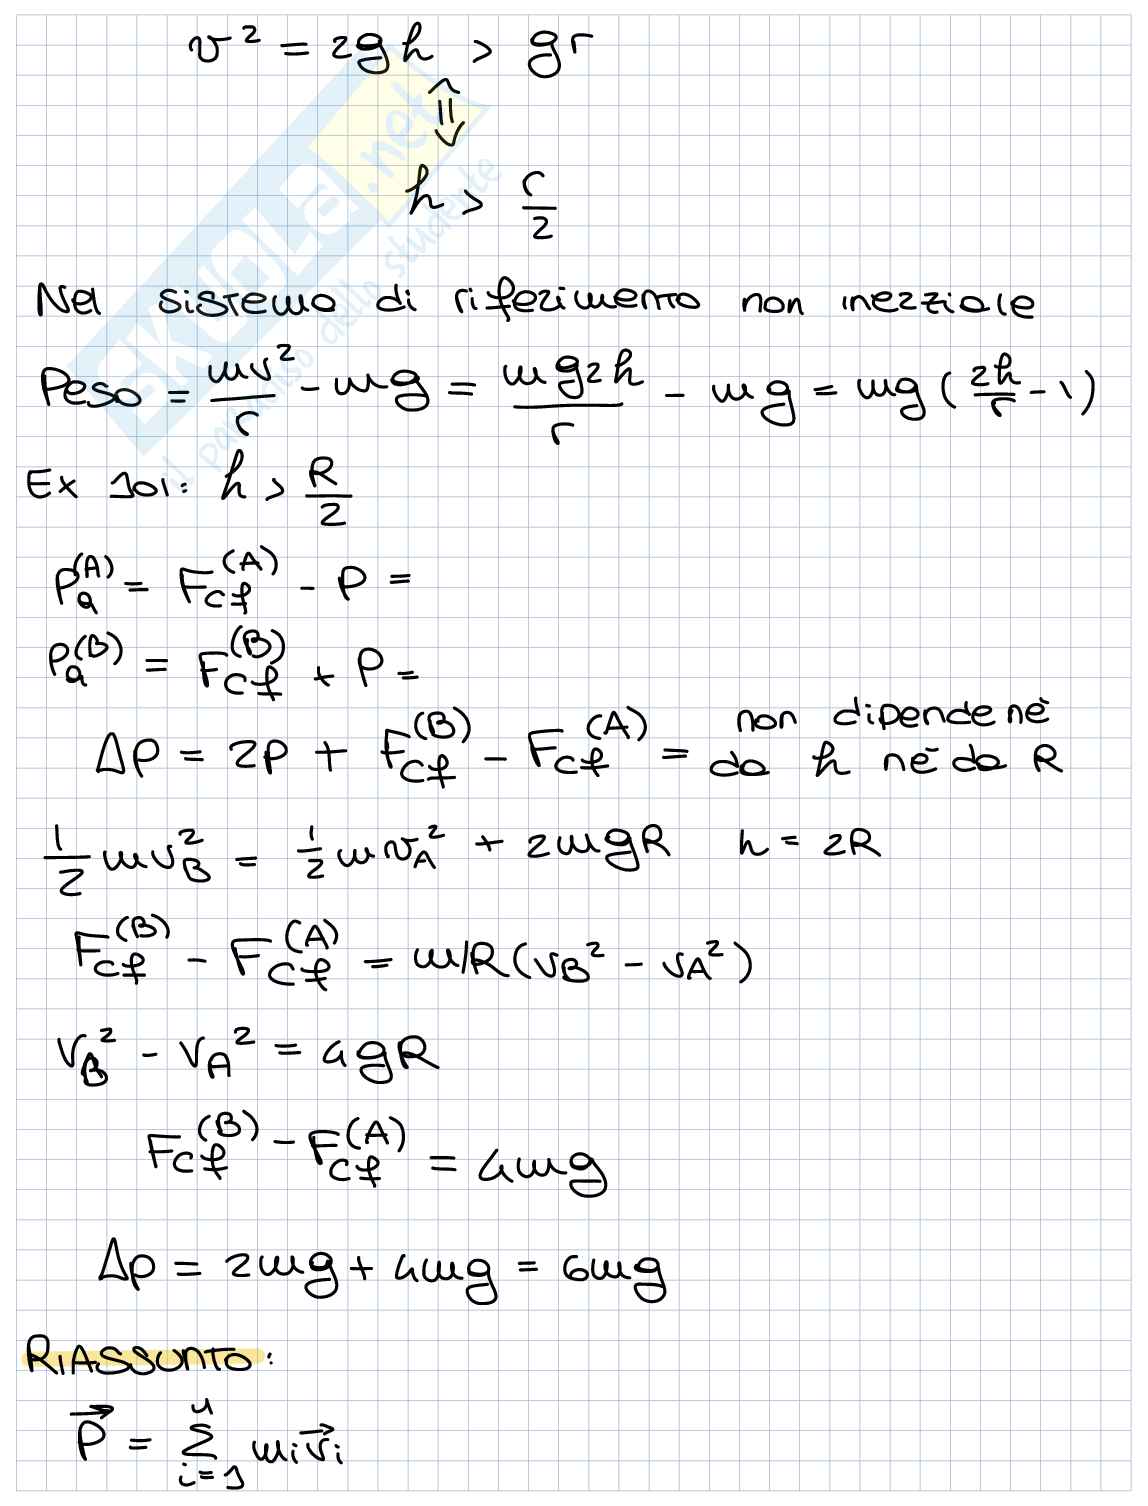 v² = 2gh > gr
⇕
h > r/2
Nel sistema di riferimento non inerziale
Peso = mv²/r - mg = mg2h/r - mg = mg (2h/r - 1)
Ex 101: h > R/2
Pa^(A) = Fcf^(A) - P =
Pa^(B) = Fcf^(B) + P =
ΔP = 2P + Fcf^(B) - Fcf^(A) = non dipende nè da h nè da R
1/2 mv_B² = 1/2 mv_A² + 2mgR h = 2R
Fcf^(B) - Fcf^(A) = m/R (v_B² - v_A²)
v_B² - v_A² = 4gR
Fcf^(B) - Fcf^(A) = 4mg
Δp = 2mg + 4mg = 6mg
RIASSUNTO:
P⃗ = Σ_{i=1}^{n} m_i v⃗_i
SKUOLA.net
il paradiso dello studente